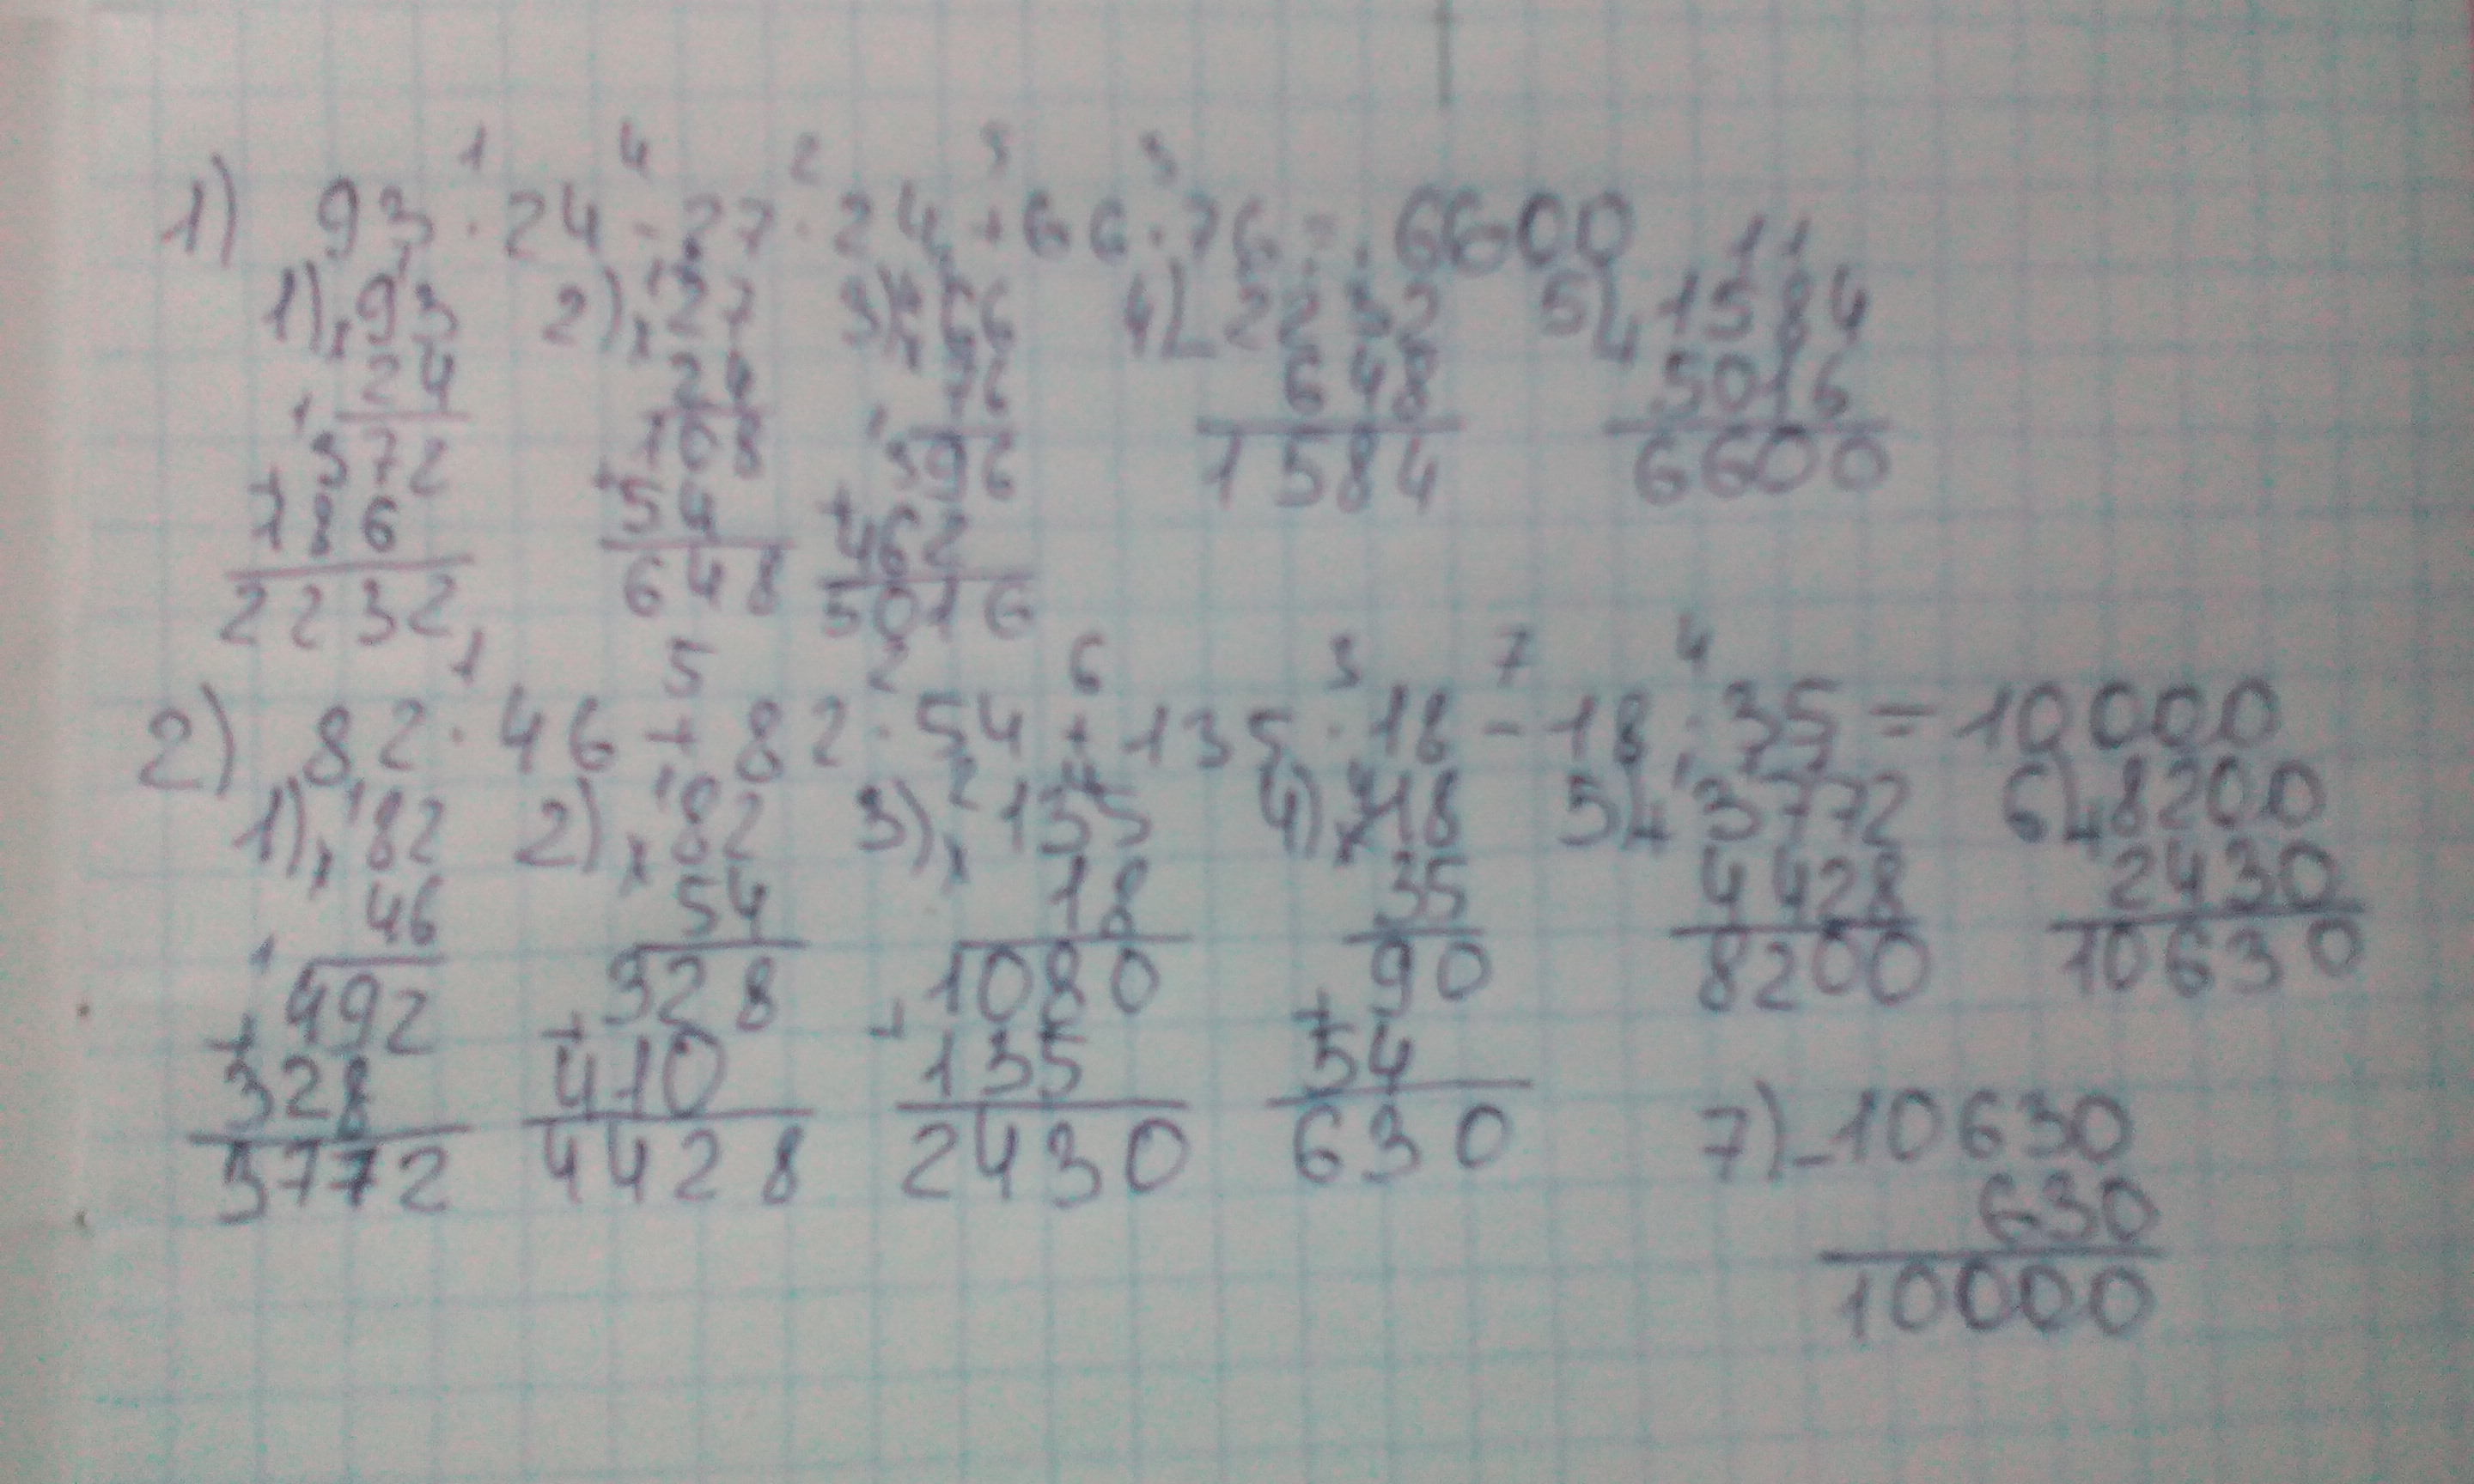 1 4 2 5 3
1) 93 · 24 - 27 · 24 + 66 · 76 = 6600
1) × 93 2) × 27 3) × 66 4) - 2232 5) + 1584
24 24 76 648 5016
372 108 396 1584 6600
+ 186 + 54 + 462
2232 648 5016
1 5 2 6 3 7 4
2) 82 · 46 + 82 · 54 + 135 · 18 - 18 · 35 = 10000
1) × 82 2) × 82 3) × 135 4) × 18 5) + 3772 6) + 8200
46 54 18 35 4428 2430
492 328 1080 90 8200 10630
+ 328 + 410 + 135 + 54
3772 4428 2430 630 7) - 10630
630
10000